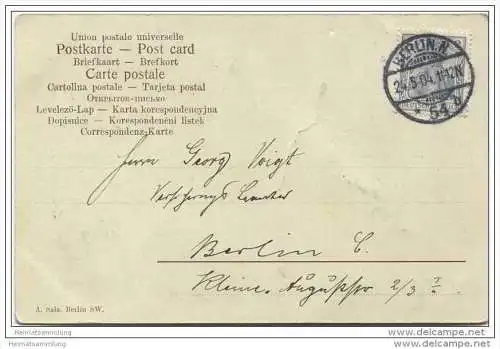 Union postale universelle
Postkarte — Post card
Briefkaart — Brefkort
Carte postale
Cartolina postale — Tarjeta postal
Открытое-письмо
Levelező-Lap — Karta korespondencyjna
Dopisnice — Korespondenční listek
Correspondenz-Karte
BERLIN.N.
24.5.04.11-12V.
54.a
Herrn Georg Voigt
Versicherungs Beamter
Berlin C.
Kleine Auguststr 2/3
A. Sala. Berlin SW.
Heimatsammlung
Heimatsammlung
www.heimatsammlung.de